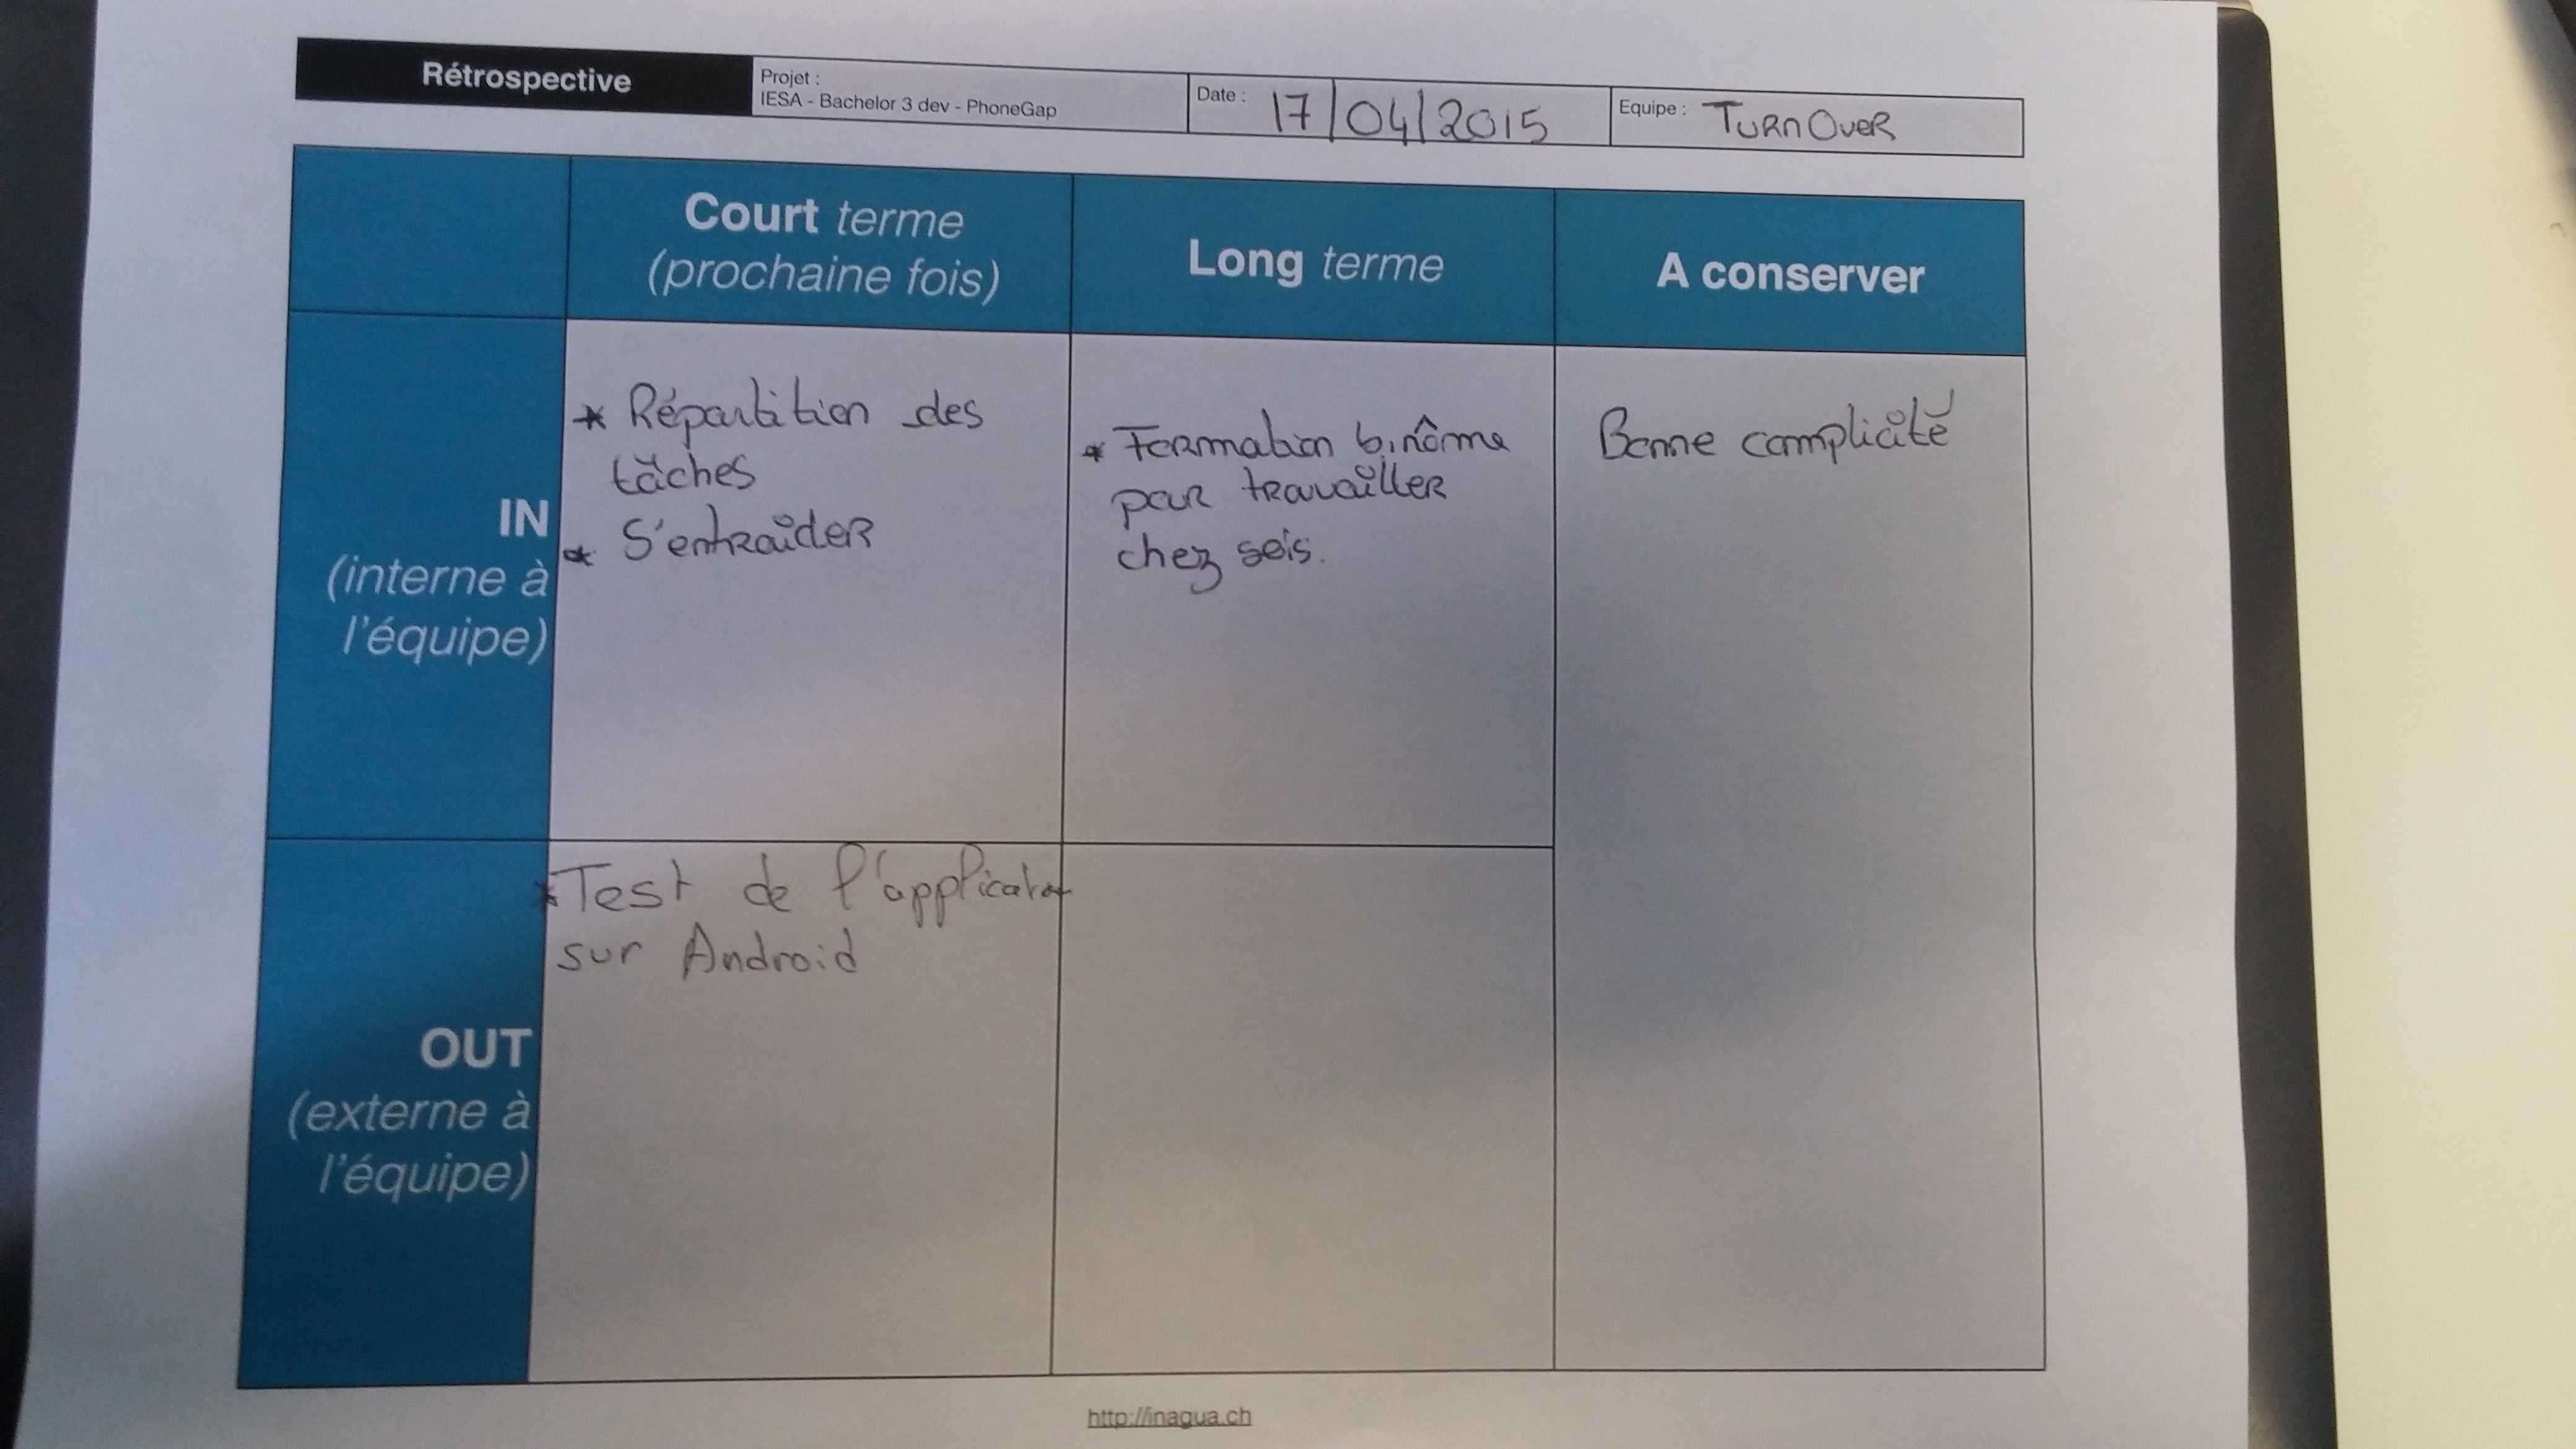 Rétrospective
Projet :
IESA - Bachelor 3 dev - PhoneGap
Date : 17/04/2015
Equipe : TurnOver
Court terme
(prochaine fois)
Long terme
A conserver
IN
(interne à
l'équipe)
* Répartition des
tâches
* S'entraider
* Formation binôme
pour travailler
chez sois.
Bonne complicité
OUT
(externe à
l'équipe)
* Test de l'applicat°
sur Android
http://inagua.ch